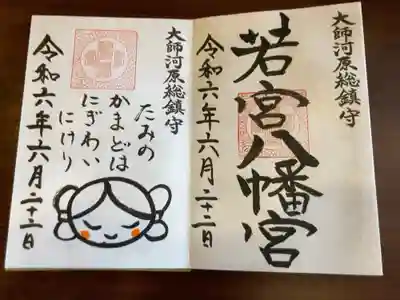 大師河原総鎮守
若宮八幡宮
令和六年六月二十二日
大師河原総鎮守
たみの
かまどは
にぎわい
にけり
令和六年六月二十二日